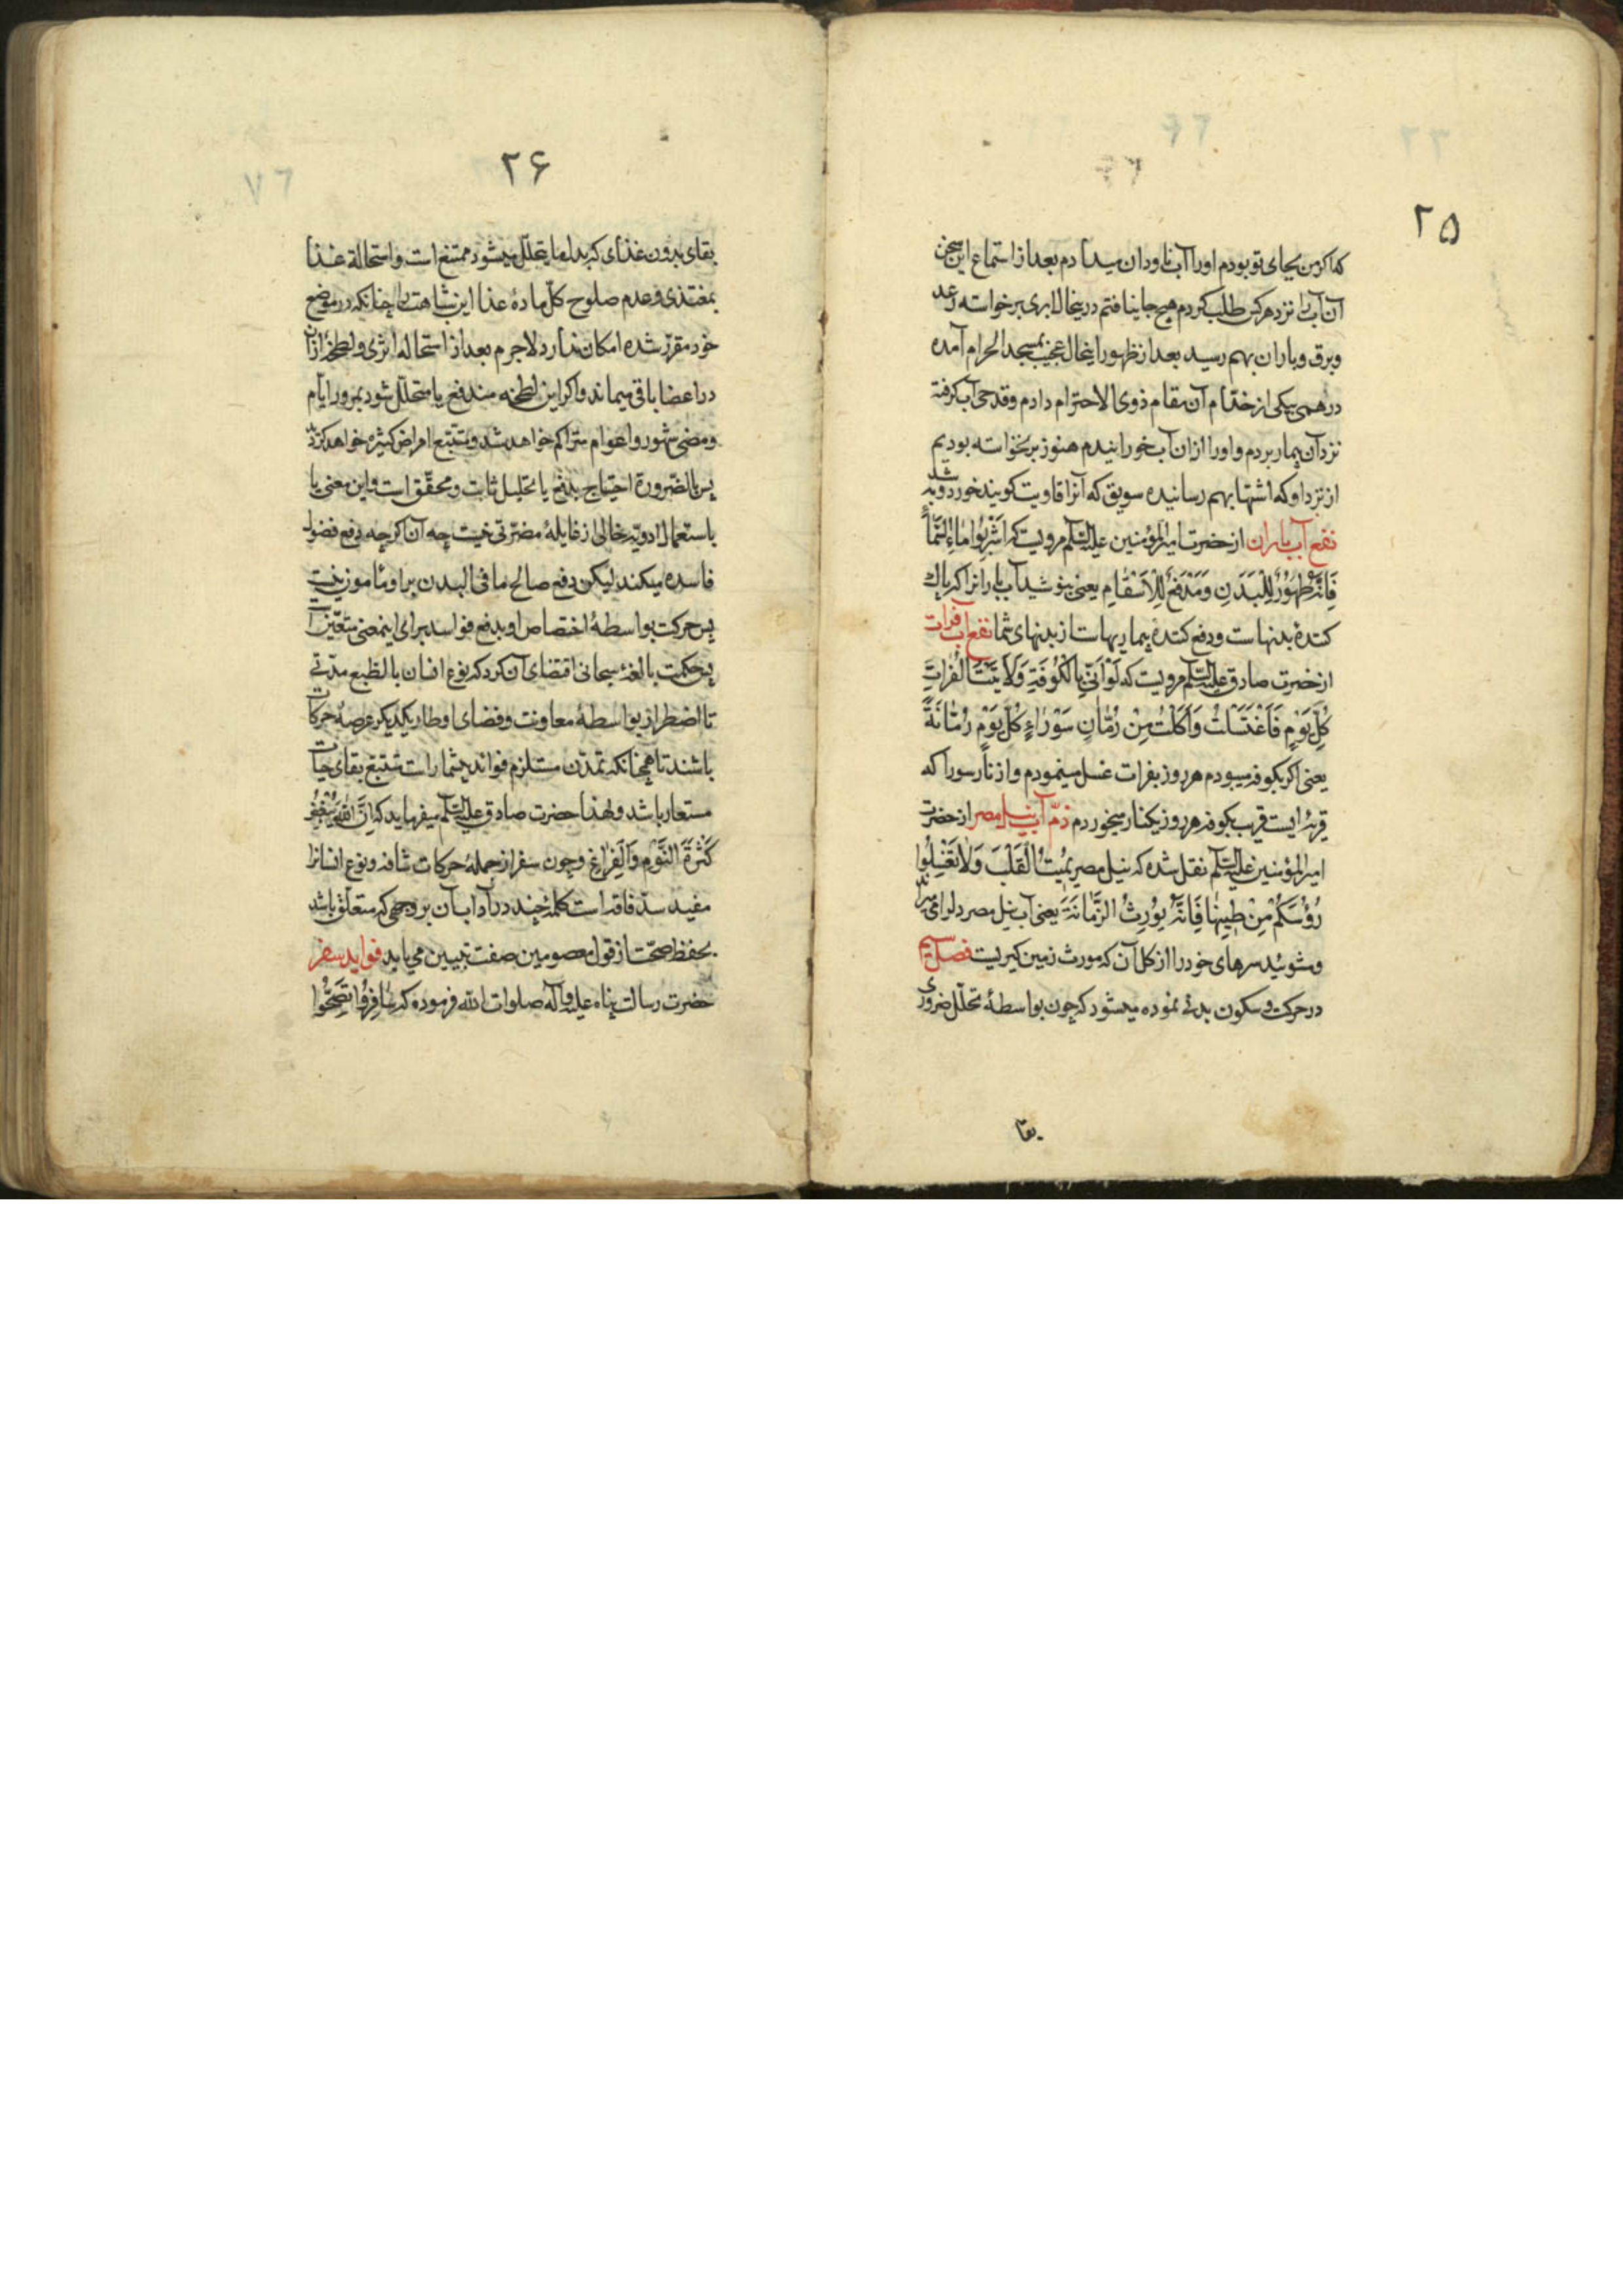 ۲۵
که اکر من بجای تو بودم او را آب ناودان میدادم بعد از استماع این سخن
آن آب را نزد هر کس طلب کردم هیچ جا نیافتم درینحال ابری برخواسته رعد
و برق و باران بهم رسید بعد از ظهور اینحال عجیب بمسجد الحرام آمده
درهمی بیکی از خدّام آن مقام ذوی الاحترام دادم و قدحی آب کرفته
نزد آن بیمار بردم و او را ازان آب خورانیدم هنوز برنخواسته بودیم
از نزد او که اشتها بهم رسانیده سویق که آنرا قاویت کویند خورد و به شد
نفع آب باران از حضرت امیر المؤمنین علیه السّلم مرویست که اِشْرَبُوا مٰاءَ السَّمٰاءِ
فَاِنَّهُ طَهُوْرٌ لِلْبَدَنِ وَمَدْفَعٌ لِلْاَسْقٰامِ یعنی بنوشید آب بارانرا که پاک
کنندهٔ بدنهاست و دفع کنندهٔ بیماریهاست از بدنهای شما نفع آب فرات
از حضرت صادق علیه السّلم مرویست که لَوْ اَنّی بِالْکُوفَةِ وَلَاَتَیْتُ الْفُرٰاتَ
کُلَّ یَوْمٍ فَاغْتَسَلْتُ وَاَکَلْتُ مِنْ رُمّٰانِ سَوْرٰاءٍ کُلَّ یَوْمٍ رُمّٰانَةً
یعنی اکر بکوفه میبودم هر روز بفرات غسل مینمودم و از نار سورا که
قریهٔ ایست قریب بکوفه هر روز یکنار میخوردم ذمّ آب نیل مصر از حضرت
امیر المؤمنین علیه السّلم نقل شده که نیل مصر یُمیتُ الْقَلْبَ وَلاٰ تَغْسِلُوا
رُؤُسَکُمْ مِنْ طینِهٰا فَاِنَّهُ یُورِثُ الزَّمٰانَةَ یعنی آب نیل مصر دلرا می
و مشوئید سرهای خود را از کل آن که مورث زمین کیریست فصل سیم
در حرکت و سکون بدنی نموده میشود که چون بواسطهٔ تحلّل ضروری
بقا
۲۶
بقای بدون غذای که بدل ما یتحلّل میشود ممتنع است و استحالهٔ غذا
بمغتذی و عدم صلوح کلّ مادهٔ غذا این شاهت را چنانکه در موضع
خود مقرّر شده امکان ندارد لاجرم بعد از استحاله اثری و لطخهٔ ازان
در اعضا باقی میماند و اکر این لطخه مندفع یا متحلّل نشود بمرور ایّام
و مضی شهور و اعوام متراکم خواهد شد و مستتبع امراض کثیره خواهد کردید
پس بالضّرورة احتیاج بدفع یا تحلیل ثابت و محقّق است و این معنی با
باستعمال ادویّه خالی از غایلهٔ مضرّتی نیست چه آن اکر چه دفع فضول
فاسده میکند لیکن دفع صالح ما فی البدن برا و مٔاموز نیست
پس حرکت بواسطهٔ اختصاص او بدفع فواسد برای اینمعنی متعیّن است
پس حکمت بالغهٔ سبحانی اقتضای آن کرد که نوع انسان بالطّبع مدنی
تا اضطرار بواسطهٔ معاونت و قضای اوطار یکدیکر عرصهٔ حرکات
باشند تا همچنانکه تمدّن مستلزم فواید بیشمار است مستتبع بقای حیات
مستعار باشد و لهذا حضرت صادق علیه السّلم میفرماید که اِنَّ اللّٰهَ یُبْغِضُ
کَثْرَةَ النَّوْمِ وَالْفَرٰاغِ و چون سفر از جملهٔ حرکات شاقه و نوع انسانرا
مفید سدّ فاقه است کلمهٔ چند در آداب آن بر وجهی که متعلّق باشد
بحفظ صحّت از قول معصومین صفت تبیین می یابد فواید سفر
حضرت رسالت پناه علیه و آله صلوات اللّه فرموده که سٰافِرُوا تَصِحُّوا